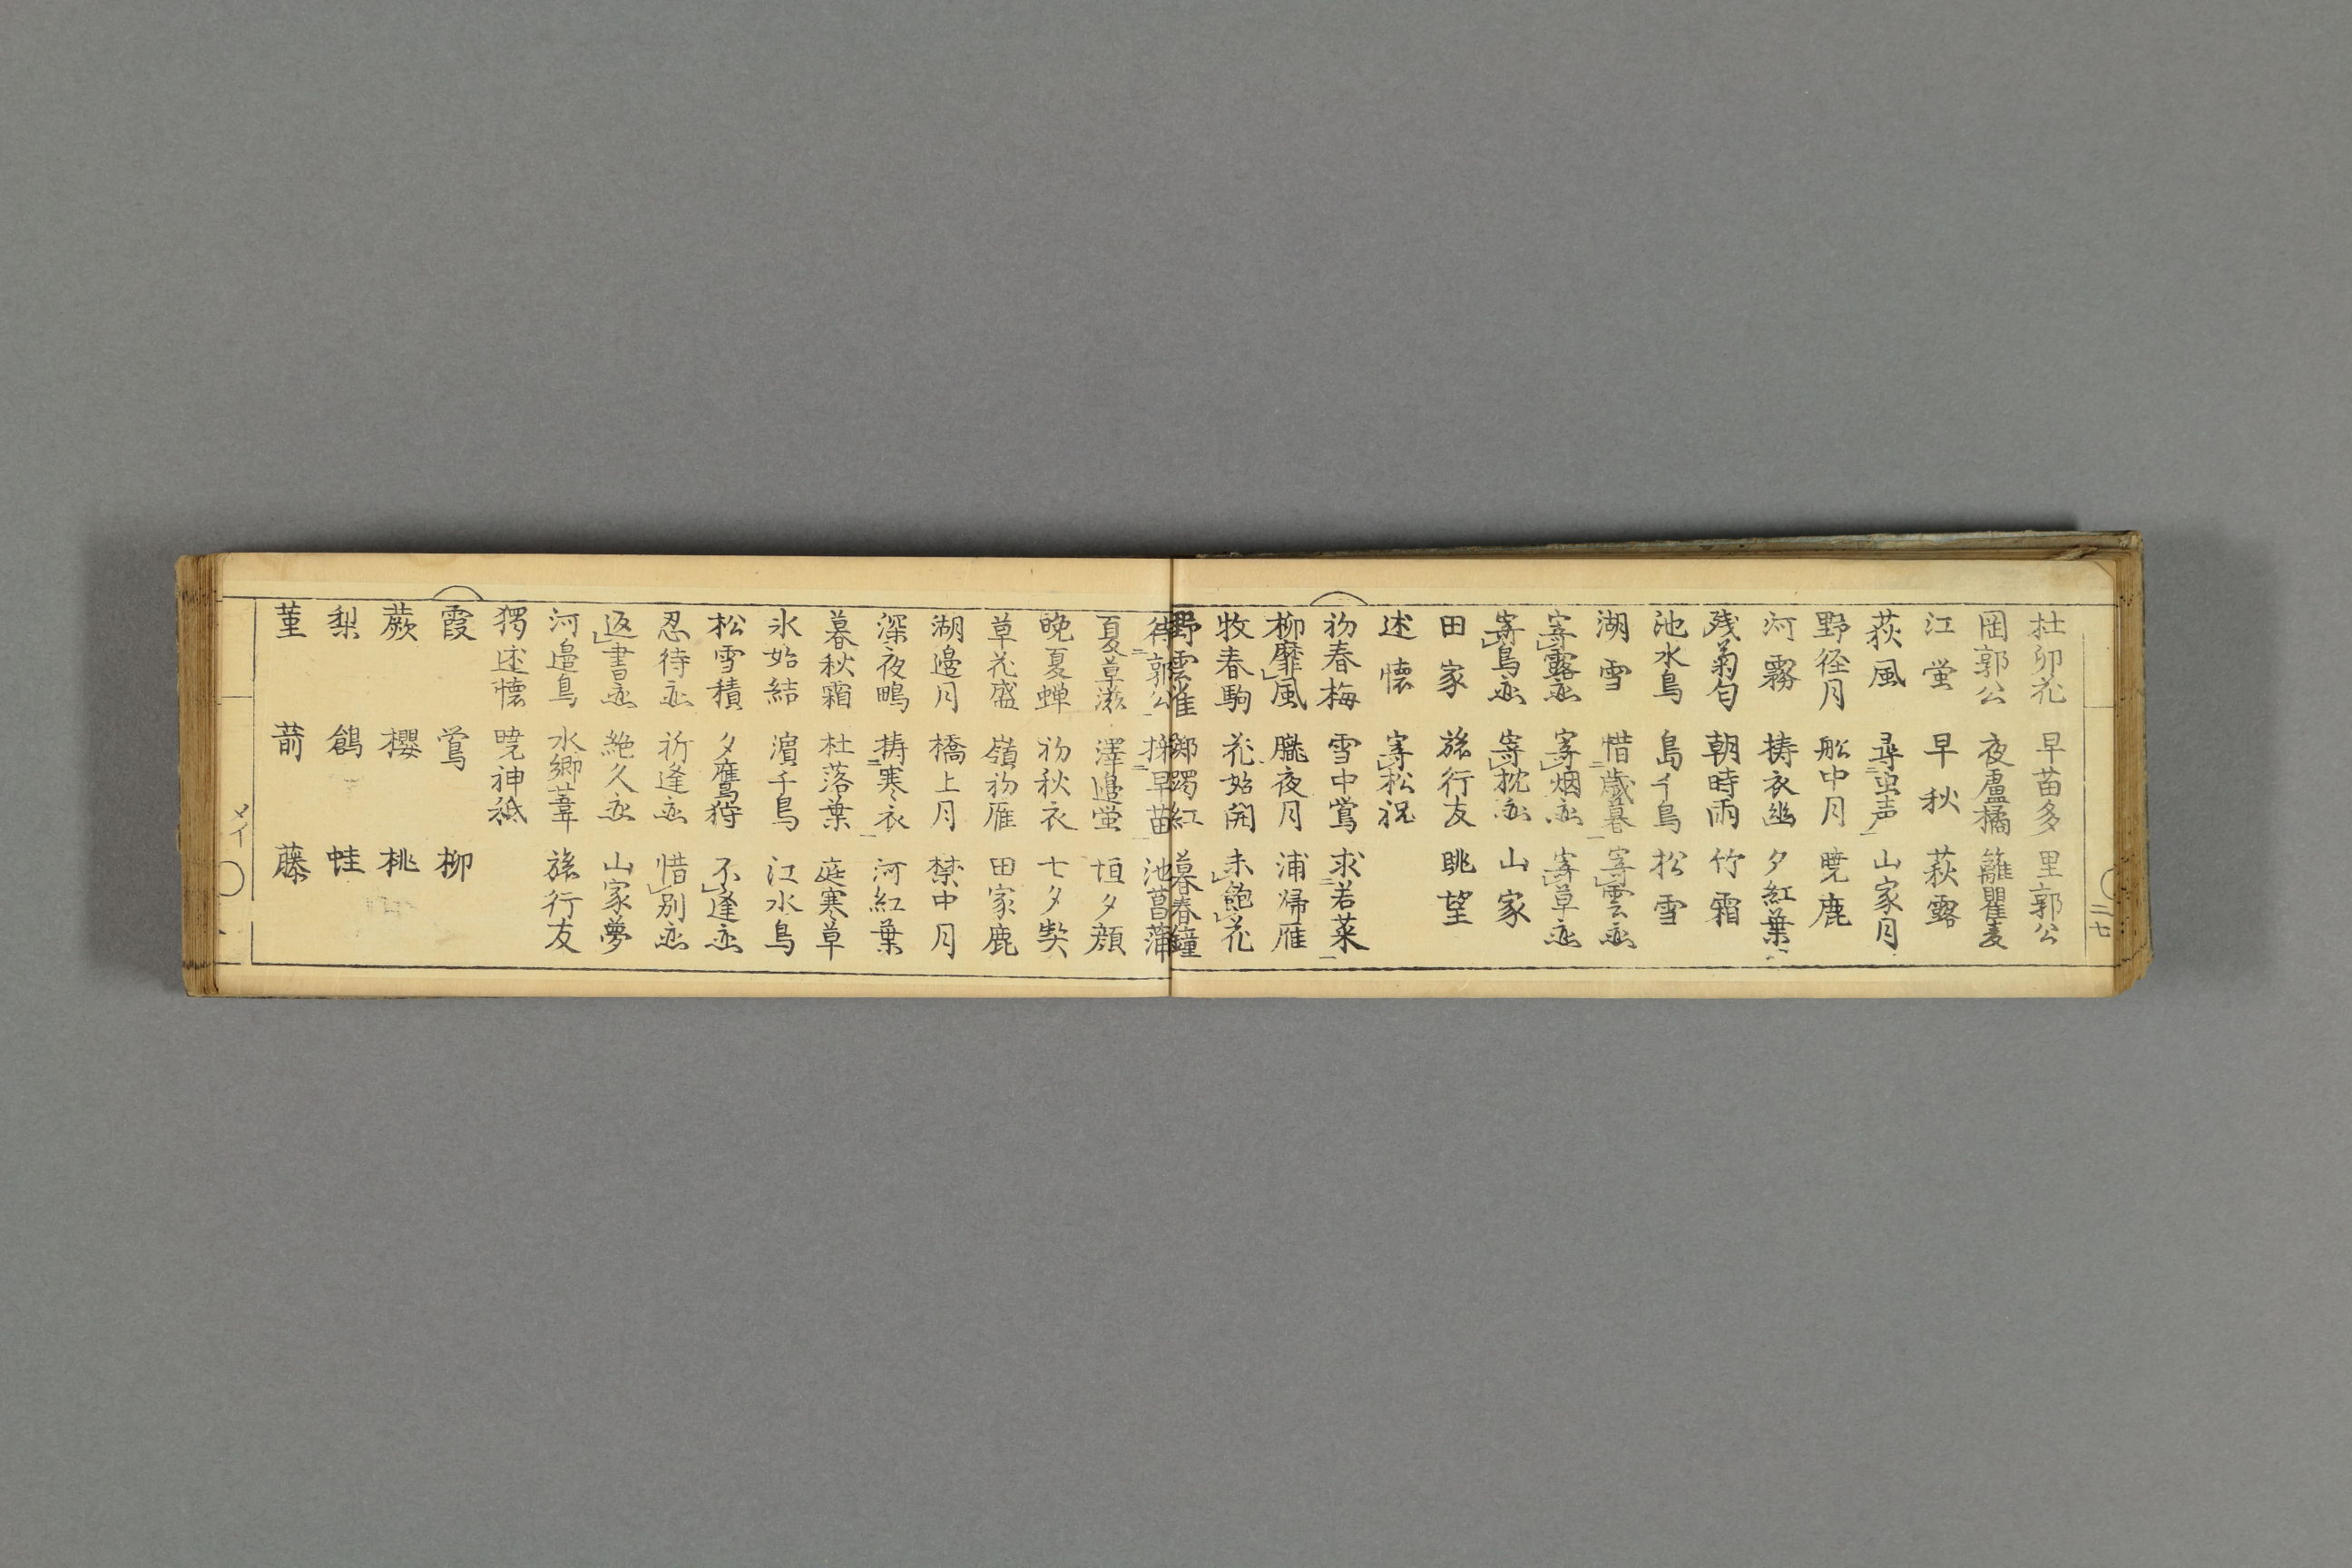 二七
杜卯花 早苗多 里郭公
岡郭公 夜盧橘 籬瞿麦
江蛍 早秋 萩露
荻風 尋虫声 山家月
野径月 船中月 暁鹿
河霧 擣衣幽 夕紅葉
残菊匂 朝時雨 竹霜
池水鳥 島千鳥 松雪
湖雪 惜歳暮 寄雲恋
寄露恋 寄烟恋 寄草恋
寄鳥恋 寄枕恋 山家
田家 旅行友 眺望
述懐 寄松祝
初春梅 雪中鴬 求若菜
柳靡風 朧夜月 浦帰雁
牧春駒 花始開 未飽花
野雲雀 躑躅紅 暮春鐘
待郭公 採早苗 池菖蒲
夏草滋 澤邉蛍 垣夕顔
晩夏蝉 初秋衣 七夕契
草花盛 嶺初雁 田家鹿
湖邉月 橋上月 禁中月
深夜鴫 擣寒衣 河紅葉
暮秋霜 杜落葉 庭寒草
氷始結 濵千鳥 江水鳥
松雪積 夕鷹狩 不逢恋
忍待恋 祈逢恋 惜別恋
返書恋 絶久恋 山家夢
河邉鳥 水郷葦 旅行友
獨述懐 暁神祇
霞 鴬 柳
蕨 櫻 桃
梨 蛙
菫 藤
メイ